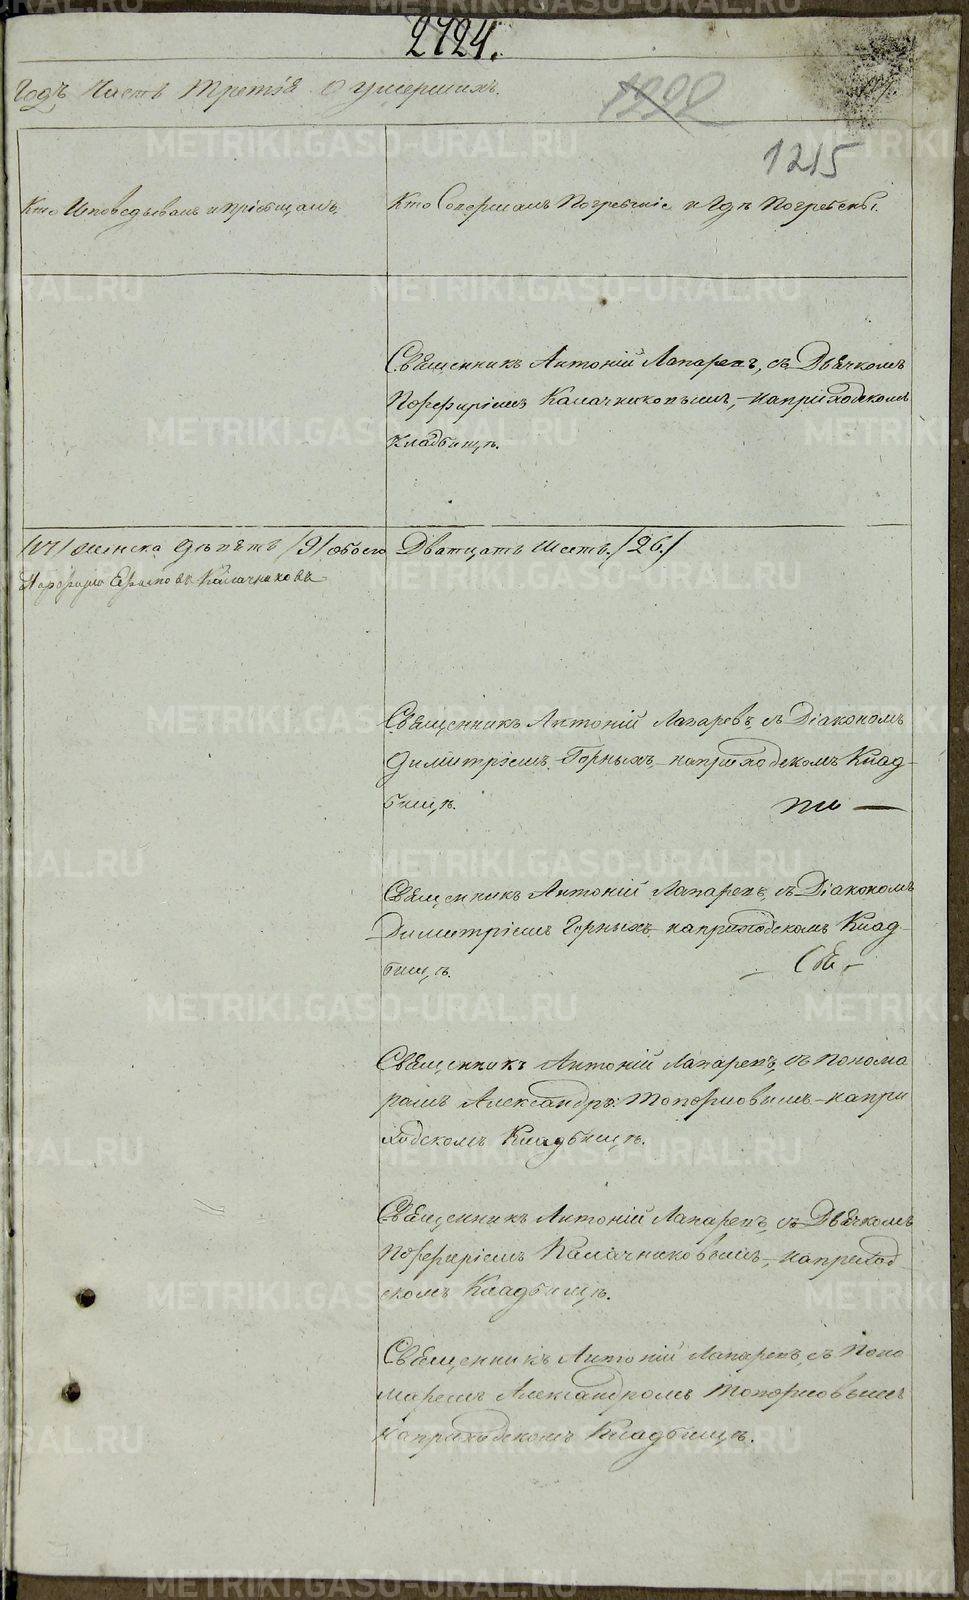 2724.
Годъ Часть Третія О умершихъ.
1222
1215
Кто Исповедывалъ и прiобщалъ
Кто Совершалъ Погребенiе и Где Погребены.
Священникъ Антонiй Лапаревъ, съ Дьячкомъ
Порфирiемъ Калачниковымъ, на приходскомъ
кладбищѣ.
/17/ женска девять /9/ обоего Дватцать шесть. /26./
Калачниковъ
Священникъ Антонiй Лапаревъ, съ Дiакономъ
Димитрiемъ Горныхъ, на приходскомъ Клад-
бищѣ.
Священникъ Антонiй Лапаревъ, съ Дiакономъ
Димитрiемъ Горныхъ на приходскомъ Клад-
бищѣ.
Священникъ Антонiй Лапаревъ, съ понома
ремъ Александръ Топорковымъ на при
ходскомъ Кладбищѣ.
Священникъ Антонiй Лапаревъ, съ Дьячкомъ
Порфирiемъ Калачниковымъ, на приход
скомъ Кладбищѣ.
Священникъ Антонiй Лапаревъ, съ Поно
маремъ Александромъ Топорковымъ
на приходскомъ Кладбищѣ.
METRIKI.GASO-URAL.RU